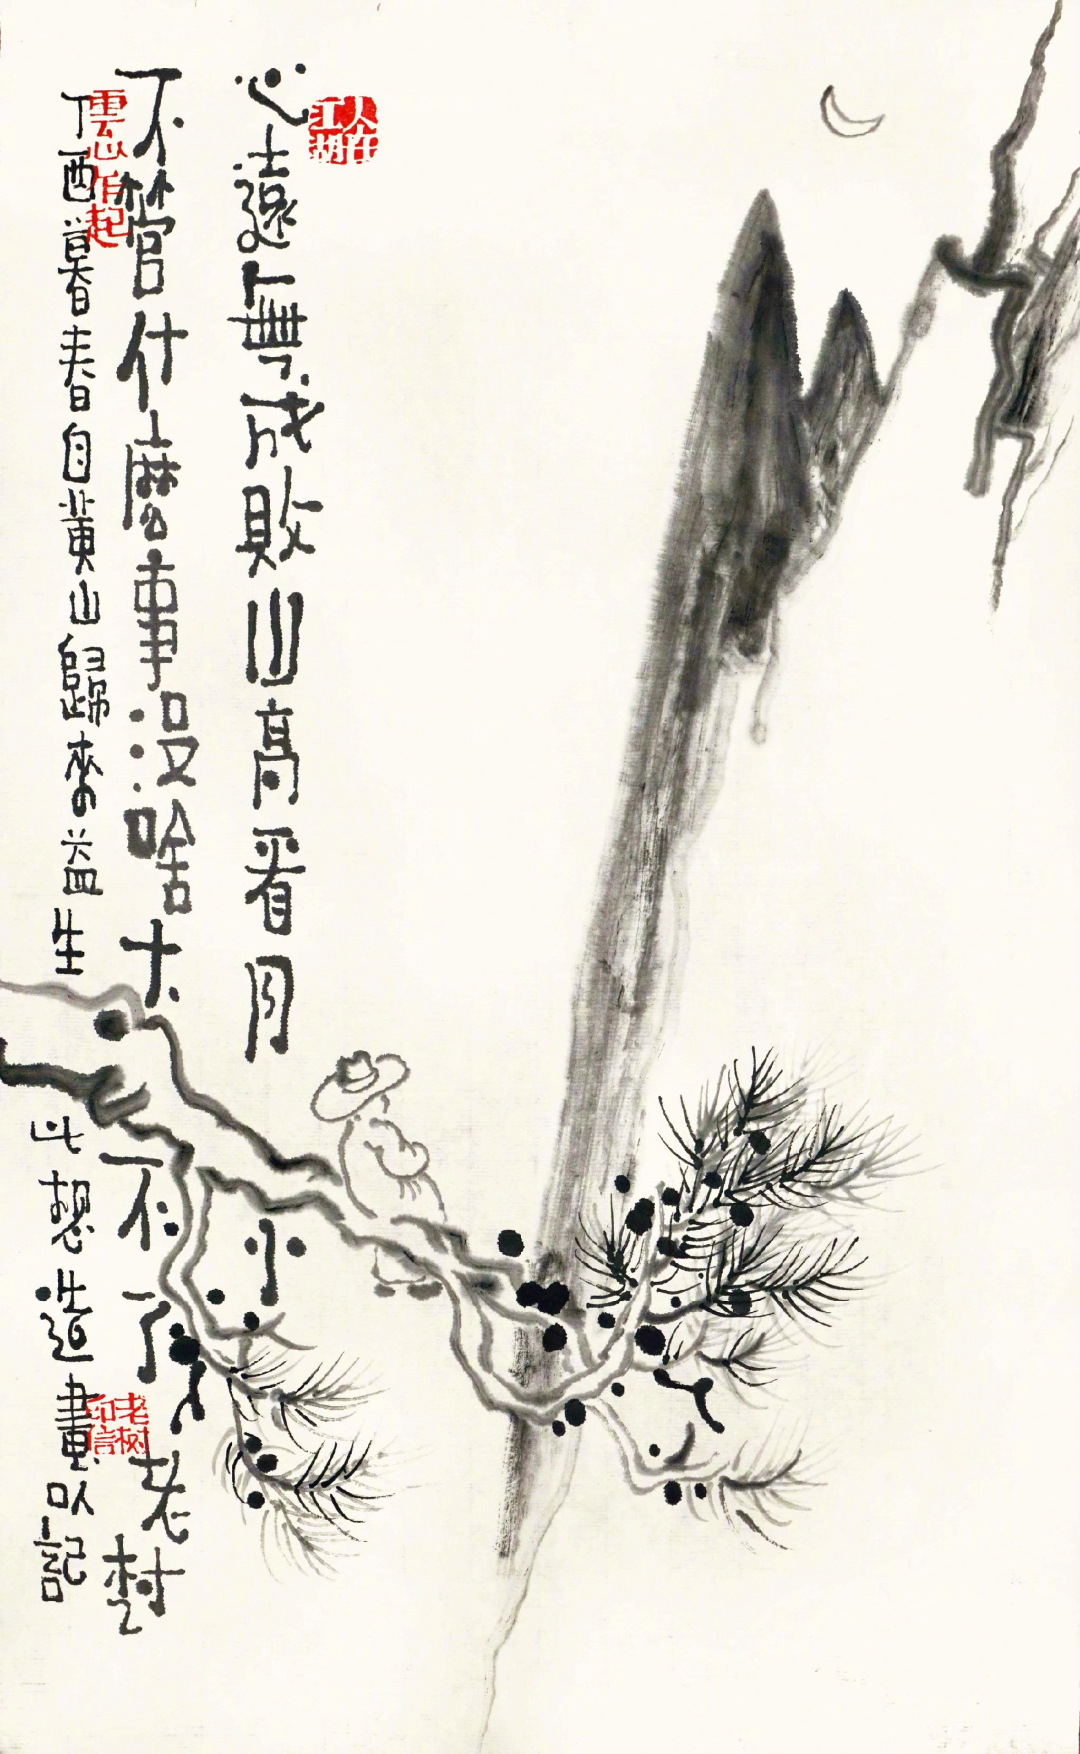 人在江湖
心遠無成敗山高看月小
不管什麼事沒啥大不了老树
丁酉暮春自黃山歸來益生此想造畫以記
老树印信